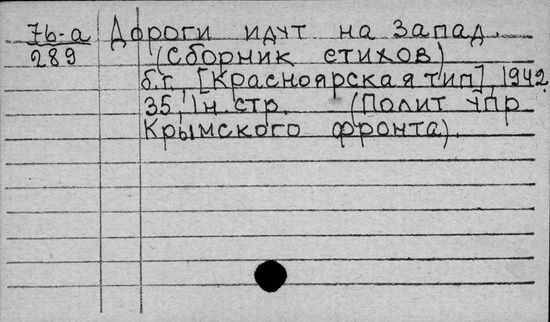 7б-а Дороги идут на запад.
289 (Сборник стихов)
б.г., [Красноярская тип], 1942
35, 1н. стр. (Полит упр
Крымского фронта).